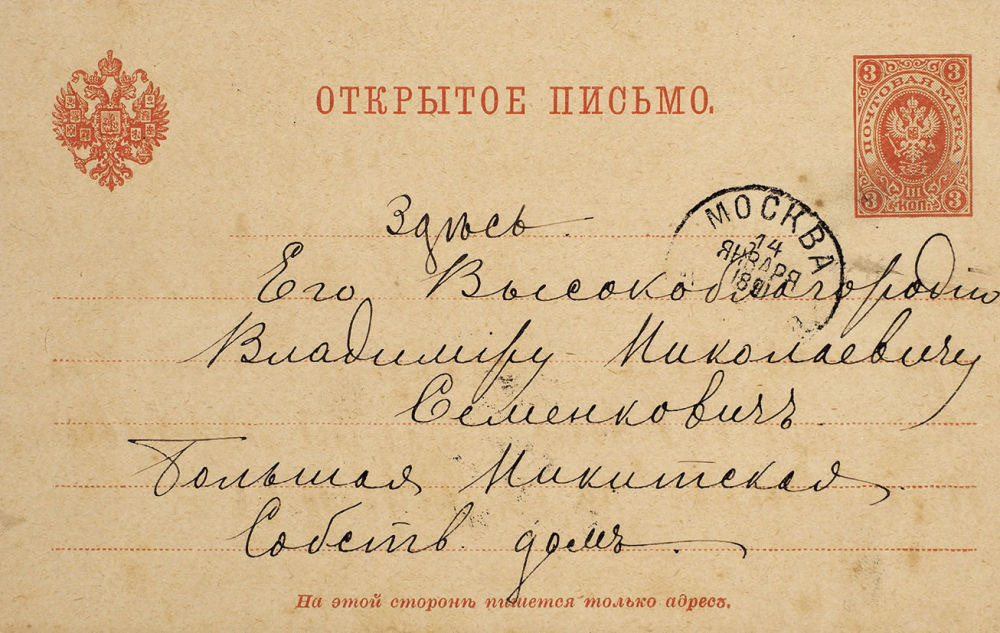 ОТКРЫТОЕ ПИСЬМО.
3 3
ПОЧТОВАЯ МАРКА
III
3 КОП. 3
Здѣсь.
МОСКВА
14
ЯНВАРЯ
1891
Его Высокоблагородію
Владиміру Николаевичу
Семенковичъ
Большая Никитская
Собств. домъ.
На этой сторонѣ пишется только адресъ.